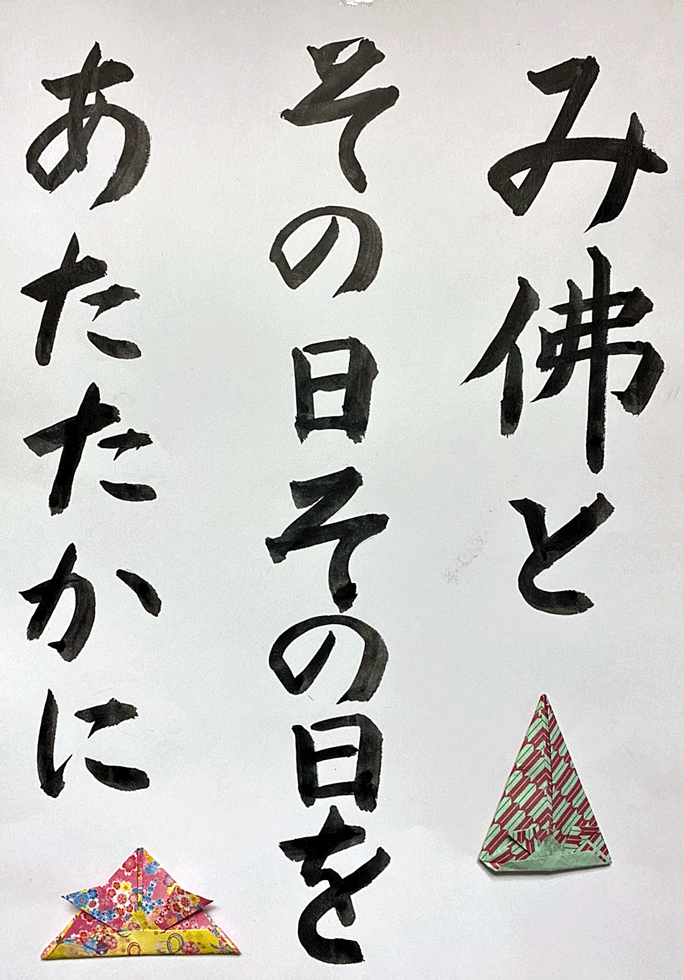 み佛と
その日その日を
あたたかに